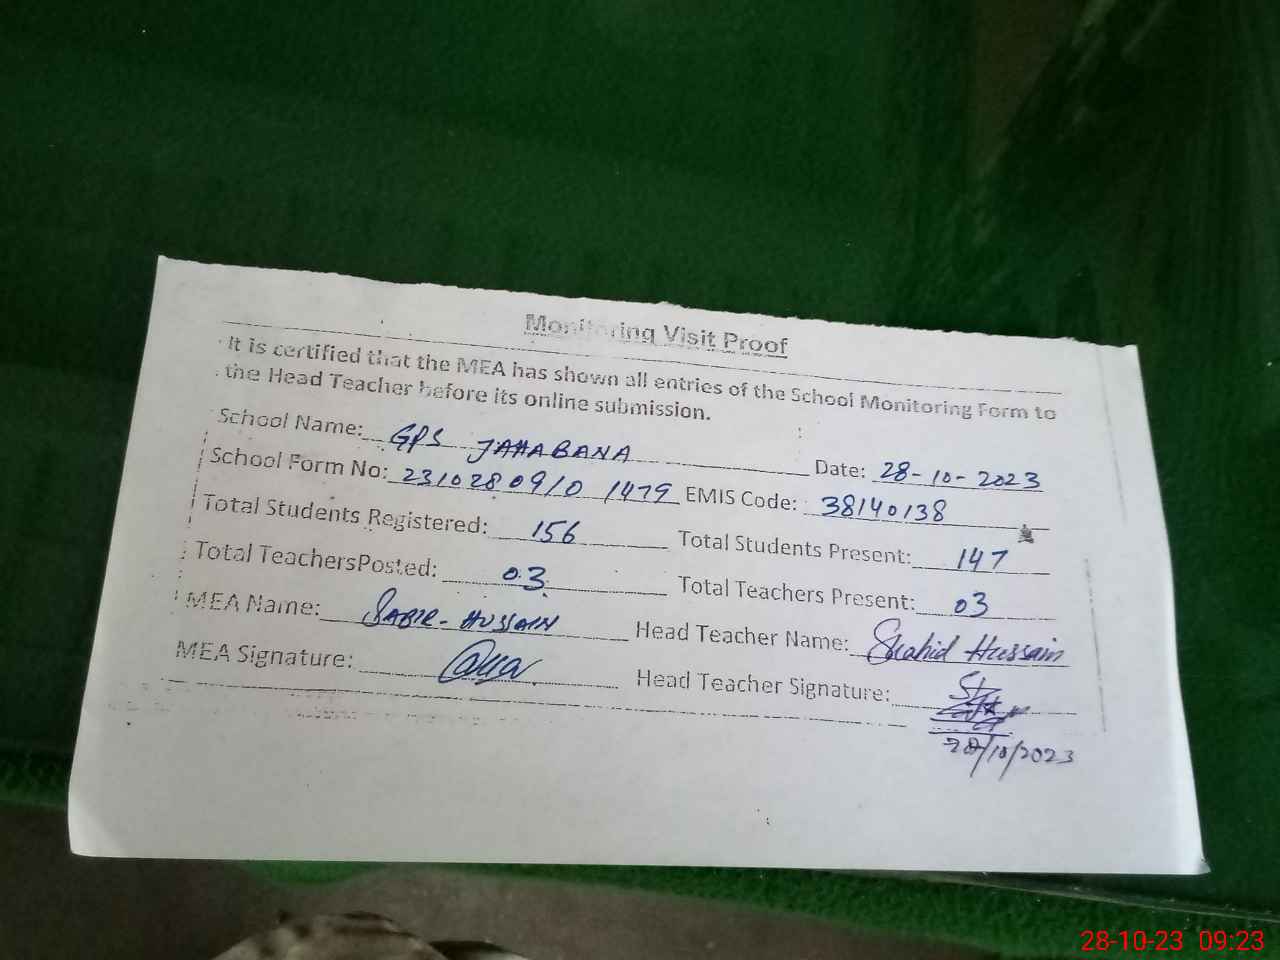 Monitoring Visit Proof
It is certified that the MEA has shown all entries of the School Monitoring Form to
the Head Teacher before its online submission.
School Name: GPS JAHABANA Date: 28-10-2023
School Form No: 2310280910 1479 EMIS Code: 38140138
Total Students Registered: 156 Total Students Present: 147
Total TeachersPosted: 03 Total Teachers Present: 03
MEA Name: SABIR-HUSSAIN Head Teacher Name: Shahid Hussain
MEA Signature: Head Teacher Signature:
28/10/2023
28-10-23 09:23